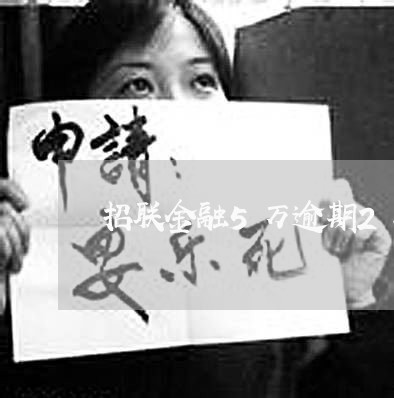 申請：
招联金融5万逾期2
安乐死